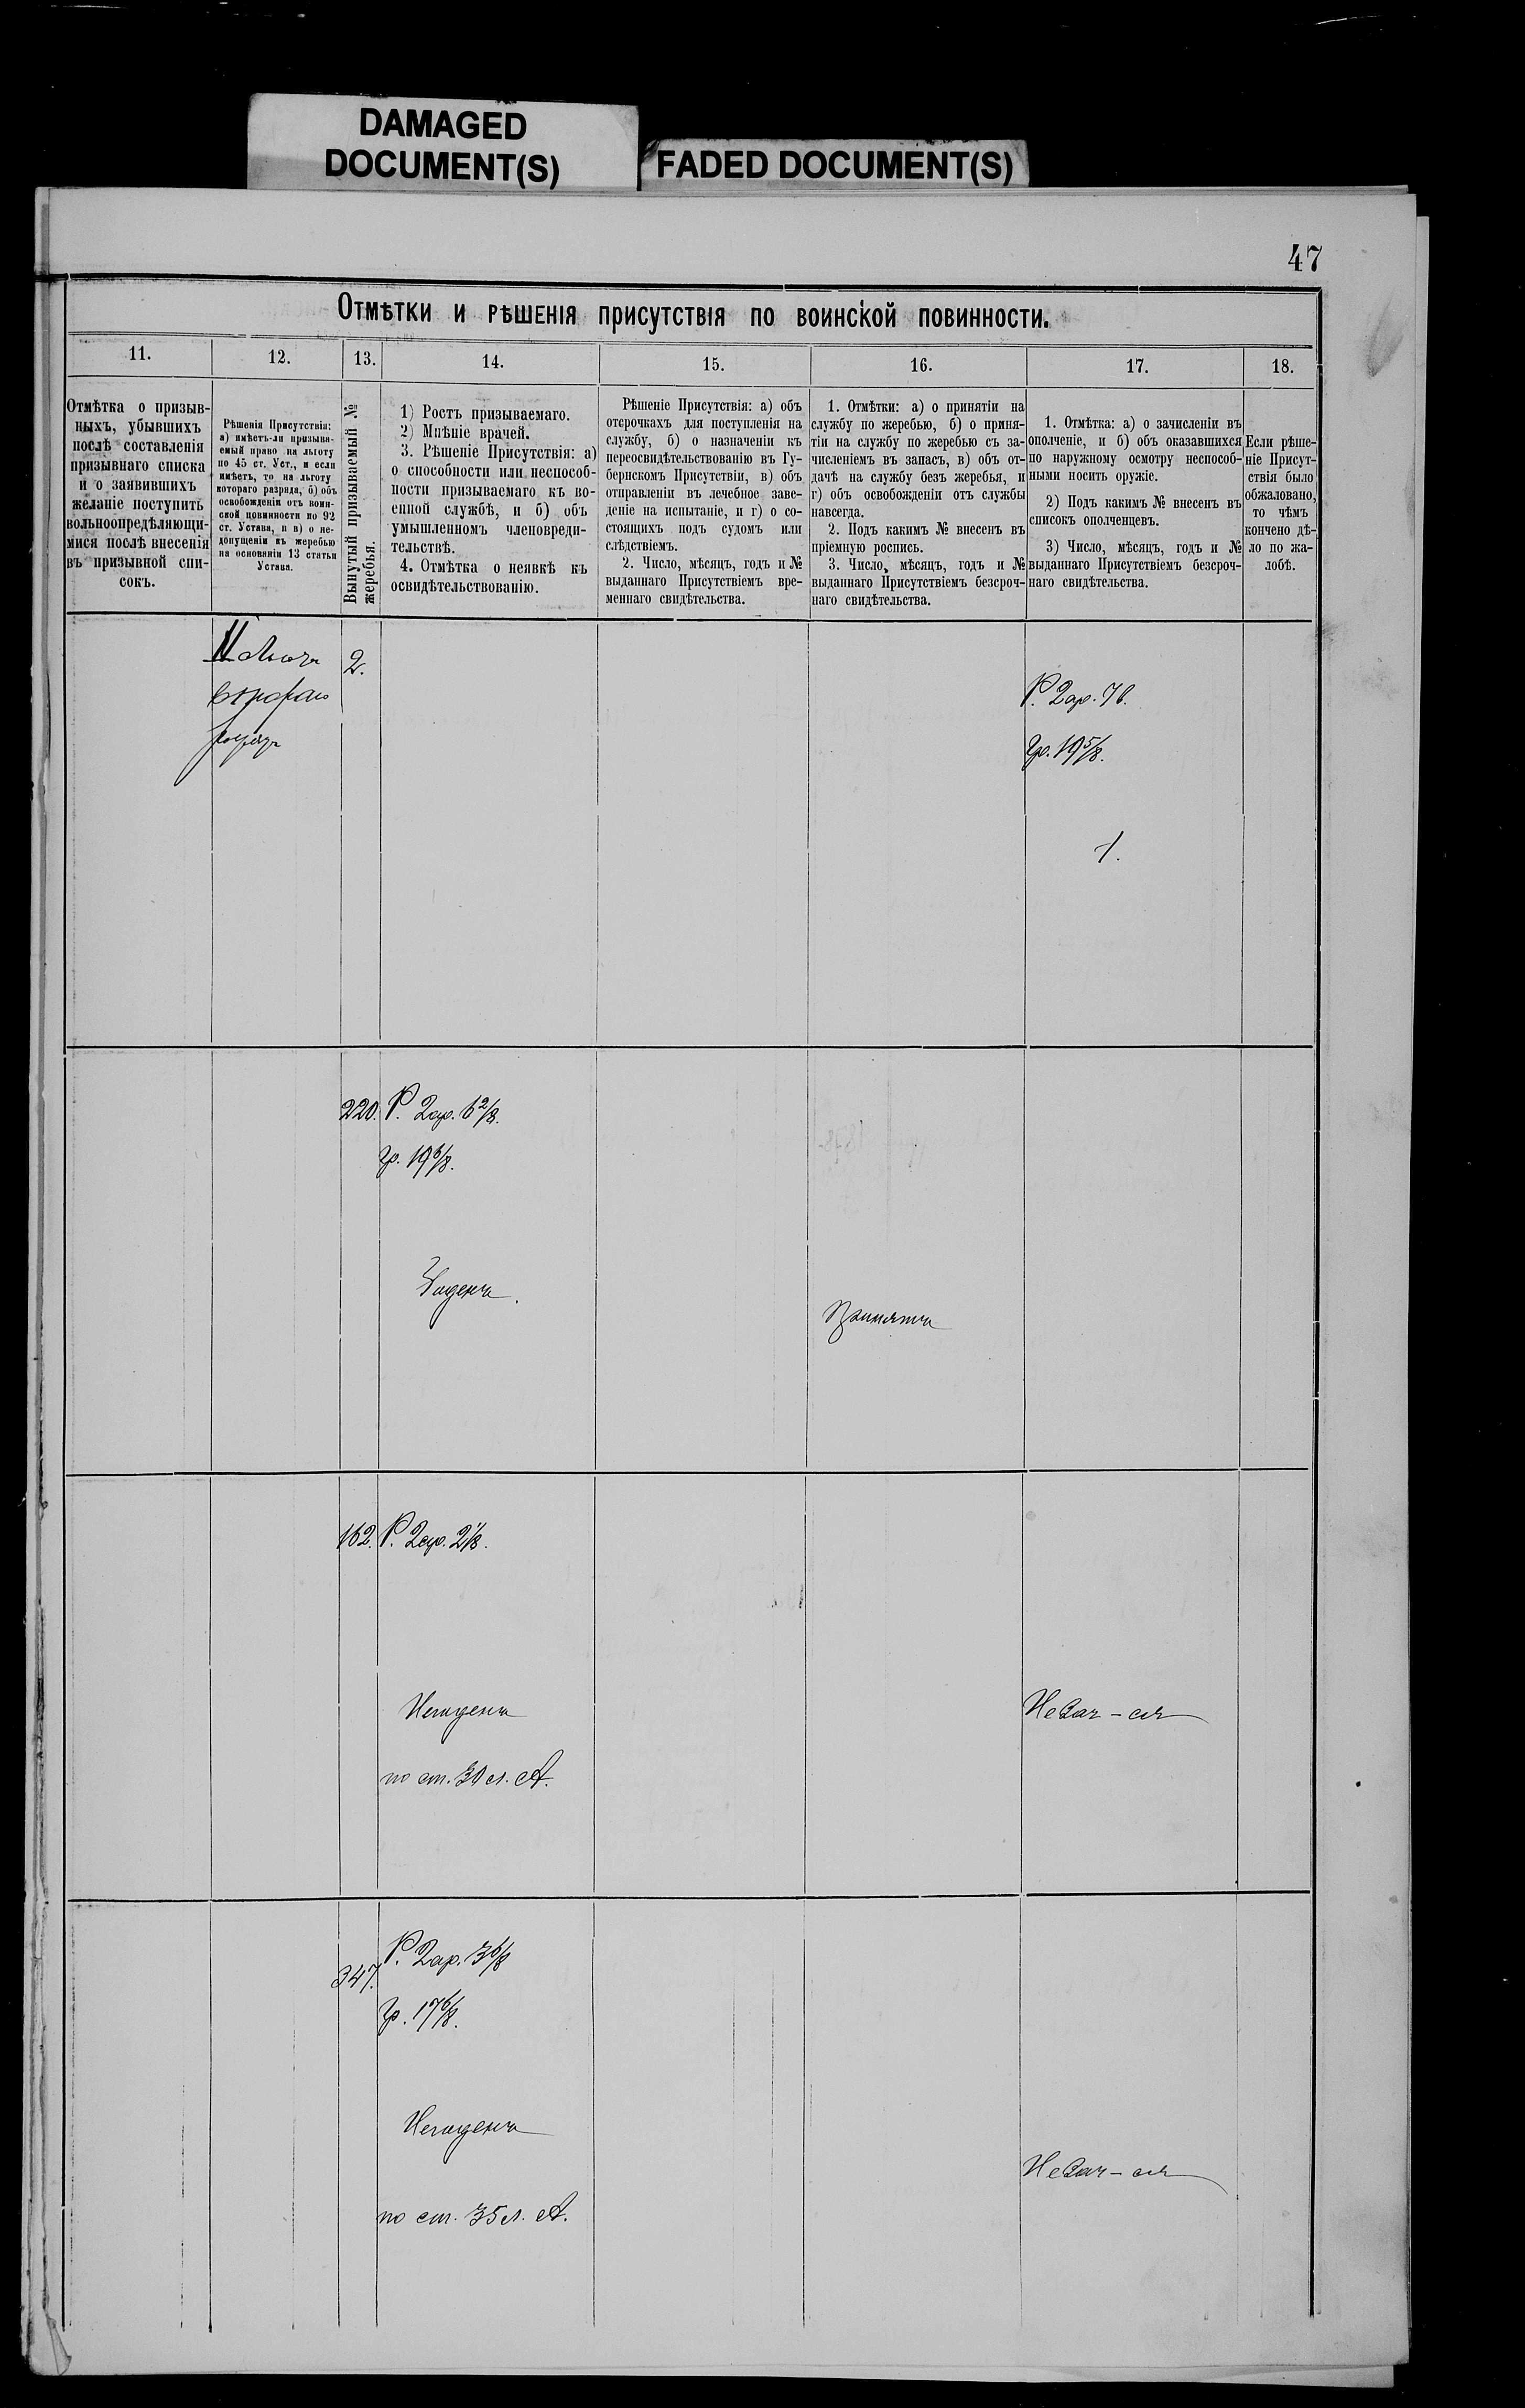 DAMAGED
DOCUMENT(S)
FADED DOCUMENT(S)
47
Отмѣтки и рѣшенія присутствія по воинской повинности.
11.
12.
13.
14.
15.
16.
17.
18.
Отмѣтка о призыв-
ныхъ, убывшихъ
послѣ составленія
призывнаго списка
и о заявившихъ
желаніе поступить
вольноопредѣляющи-
мися послѣ внесенія
въ призывной спи-
сокъ.
Рѣшенія Присутствія:
а) имѣетъ-ли призыва-
емый право на льготу
по 45 ст. Уст., и если
имѣетъ, то на льготу
котораго разряда, б) объ
освобожденіи отъ воин-
ской повинности по 92
ст. Устава, и в) о не-
допущеніи къ жеребью
на основаніи 13 статьи
Устава.
Вынутый призываемый №
жеребья.
1) Ростъ призываемаго.
2) Мнѣніе врачей.
3. Рѣшеніе Присутствія: а)
о способности или неспособ-
ности призываемаго къ во-
енной службѣ, и б) объ
умышленномъ членовреди-
тельствѣ.
4. Отмѣтка о неявкѣ къ
освидѣтельствованію.
Рѣшеніе Присутствія: а) объ
отсрочкахъ для поступленія на
службу, б) о назначеніи къ
переосвидѣтельствованію въ Гу-
бернскомъ Присутствіи, в) объ
отправленіи въ лечебное заве-
деніе на испытаніе, и г) о со-
стоящихъ подъ судомъ или
слѣдствіемъ.
2. Число, мѣсяцъ, годъ и №
выданнаго Присутствіемъ вре-
меннаго свидѣтельства.
1. Отмѣтки: а) о принятіи на
службу по жеребью, б) о приня-
тіи на службу по жеребью съ за-
численіемъ въ запасъ, в) объ от-
дачѣ на службу безъ жеребья, и
г) объ освобожденіи отъ службы
навсегда.
2. Подъ какимъ № внесенъ въ
пріемную роспись.
3. Число, мѣсяцъ, годъ и №
выданнаго Присутствіемъ безсроч-
наго свидѣтельства.
1. Отмѣтка: а) о зачисленіи въ
ополченіе, и б) объ оказавшихся
по наружному осмотру неспособ-
ными носить оружіе.
2) Подъ какимъ № внесенъ въ
списокъ ополченцевъ.
3) Число, мѣсяцъ, годъ и №
выданнаго Присутствіемъ безсроч-
наго свидѣтельства.
Если рѣше-
ніе Присут-
ствія было
обжаловано,
то чѣмъ
кончено дѣ-
ло по жа-
лобѣ.
II
2.
Р. 2 ар. 7 в.
гр. 19 5/8.
1.
220. Р. 2 ар. 6 2/8.
гр. 19 6/8.
Годенъ.
Принятъ
162. Р. 2 ар. 2 1/8.
Негоденъ
по ст. 30 л. А.
Не Зач-ся
347. Р. 2 ар. 3 6/8
гр. 17 6/8.
Негоденъ
по ст. 35 л. А.
Не Зач-ся